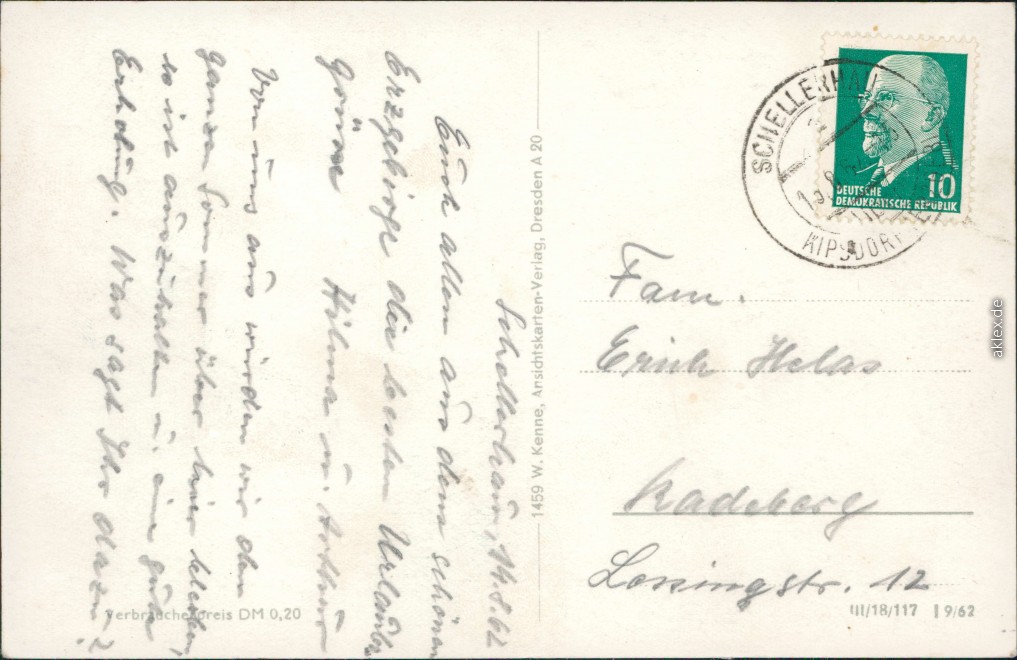 Schellerhau, 14.8.62
Euch allen aus dem schönen
Erzgebirge die besten Urlaubs
Grüsse Hilma u. Arthur
Von uns aus würden wir den
ganzen Sommer über hier bleiben,
so ist auszuhalten u. eine gute
Erholung. Was sagt Ihr dazu?
Verbraucherpreis DM 0,20
1459 W. Kenne, Ansichtskarten-Verlag, Dresden A 20
SCHELLERHAU
KIPSDORF
10
DEUTSCHE
DEMOKRATISCHE REPUBLIK
Fam.
Erich Helas
Radeberg
Lessingstr. 12
III/18/117 I 9/62
aklex.de